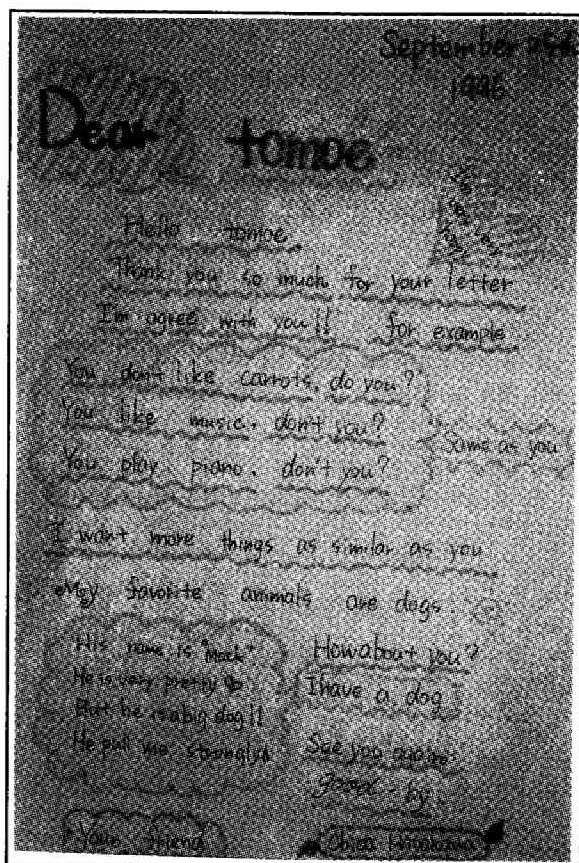 September
1996
Dear tomoe
Hello tomoe.
Thank you so much for your letter
I'm agree with you!! for example
You don't like carrots, do you?
You like music, don't you?
You play piano, don't you?
Same as you
I want more things as similar as you
My favorite animals are dogs.
His name is "Mack".
He is very pretty
But he is a big dog!!
He pull me strongly
How about you?
I have a dog
See you
good-by
Your friend